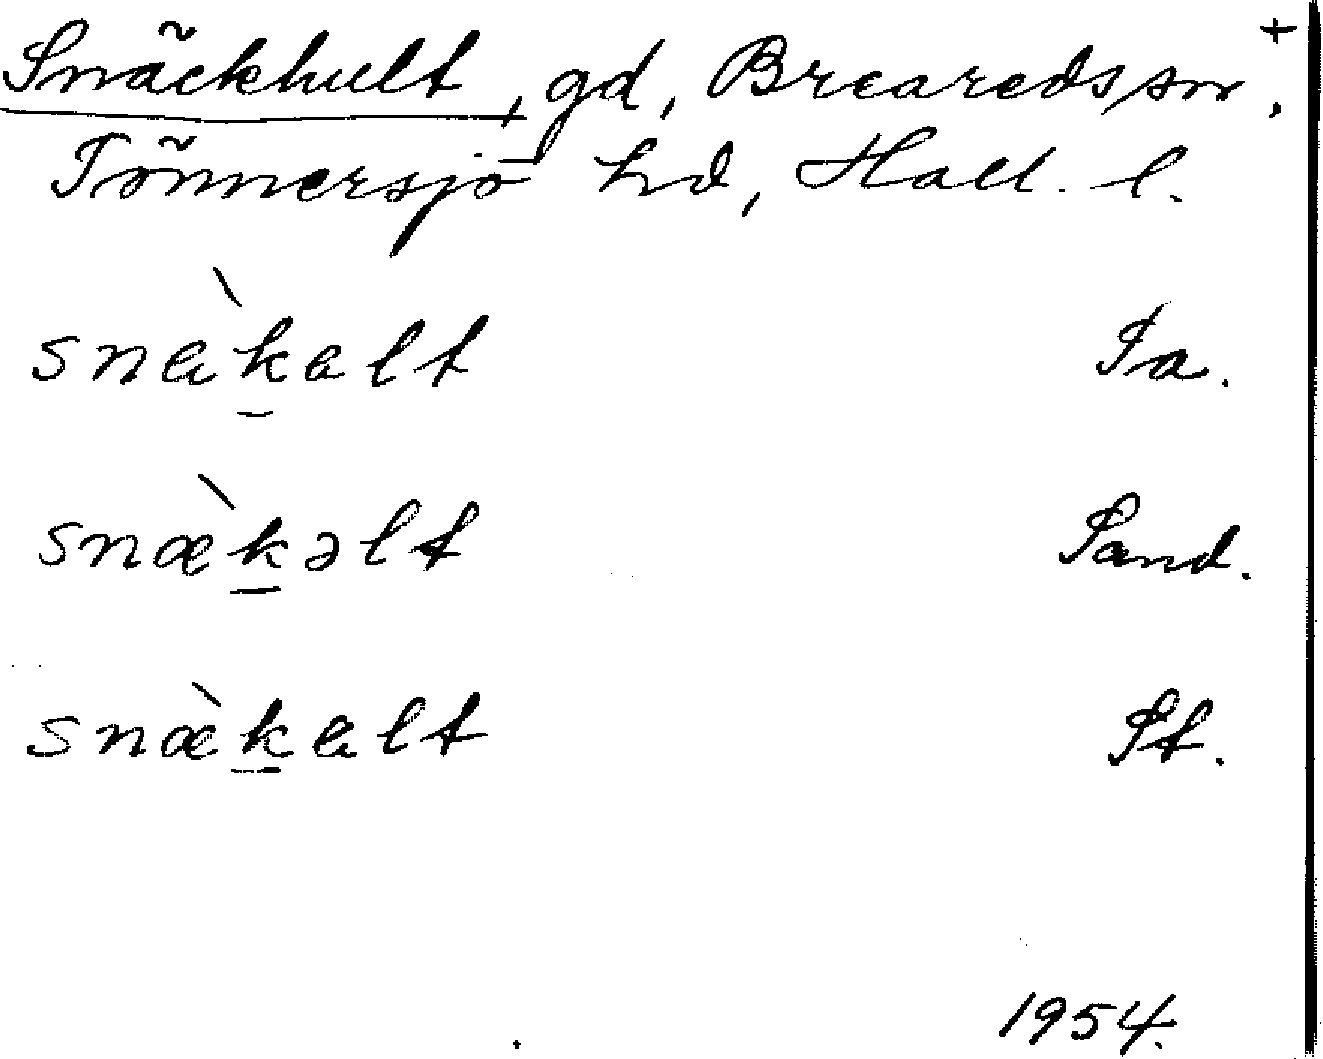 Snäckhult, gd, Breareds sn, +
Tönnersjö hd, Hall. l.
snæ̀k̲alt
snæ̀k̲əlt Sand.
snæ̀k̲alt St.
1954.